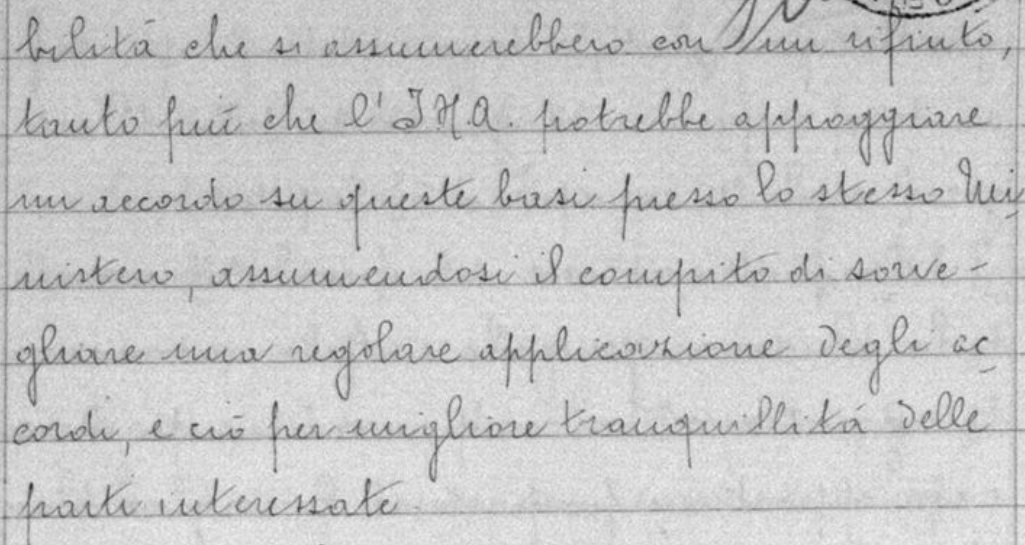 bilitá che si assumerebbero con un rifiuto,
tanto piú che l'INA. potrebbe appoggiare
un accordo su queste basi presso lo stesso Mi
nistero, assumendosi il compito di sorve-
gliare una regolare applicazione degli ac
cordi, e ció per migliore tranquillitá delle
parti interessate.